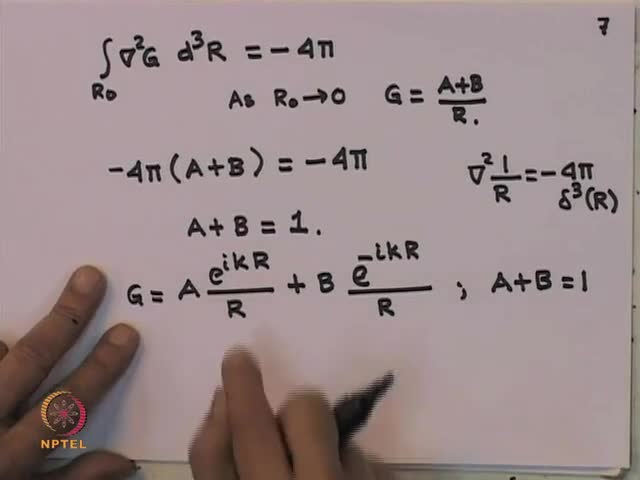 7
∫_{R₀} ∇²G d³R = -4π
As R₀→0 G = (A+B)/R.
-4π(A+B) = -4π
∇² 1/R = -4π
δ³(R)
A+B = 1.
G = A e^{ikR}/R + B e^{-ikR}/R ; A+B=1
NPTEL